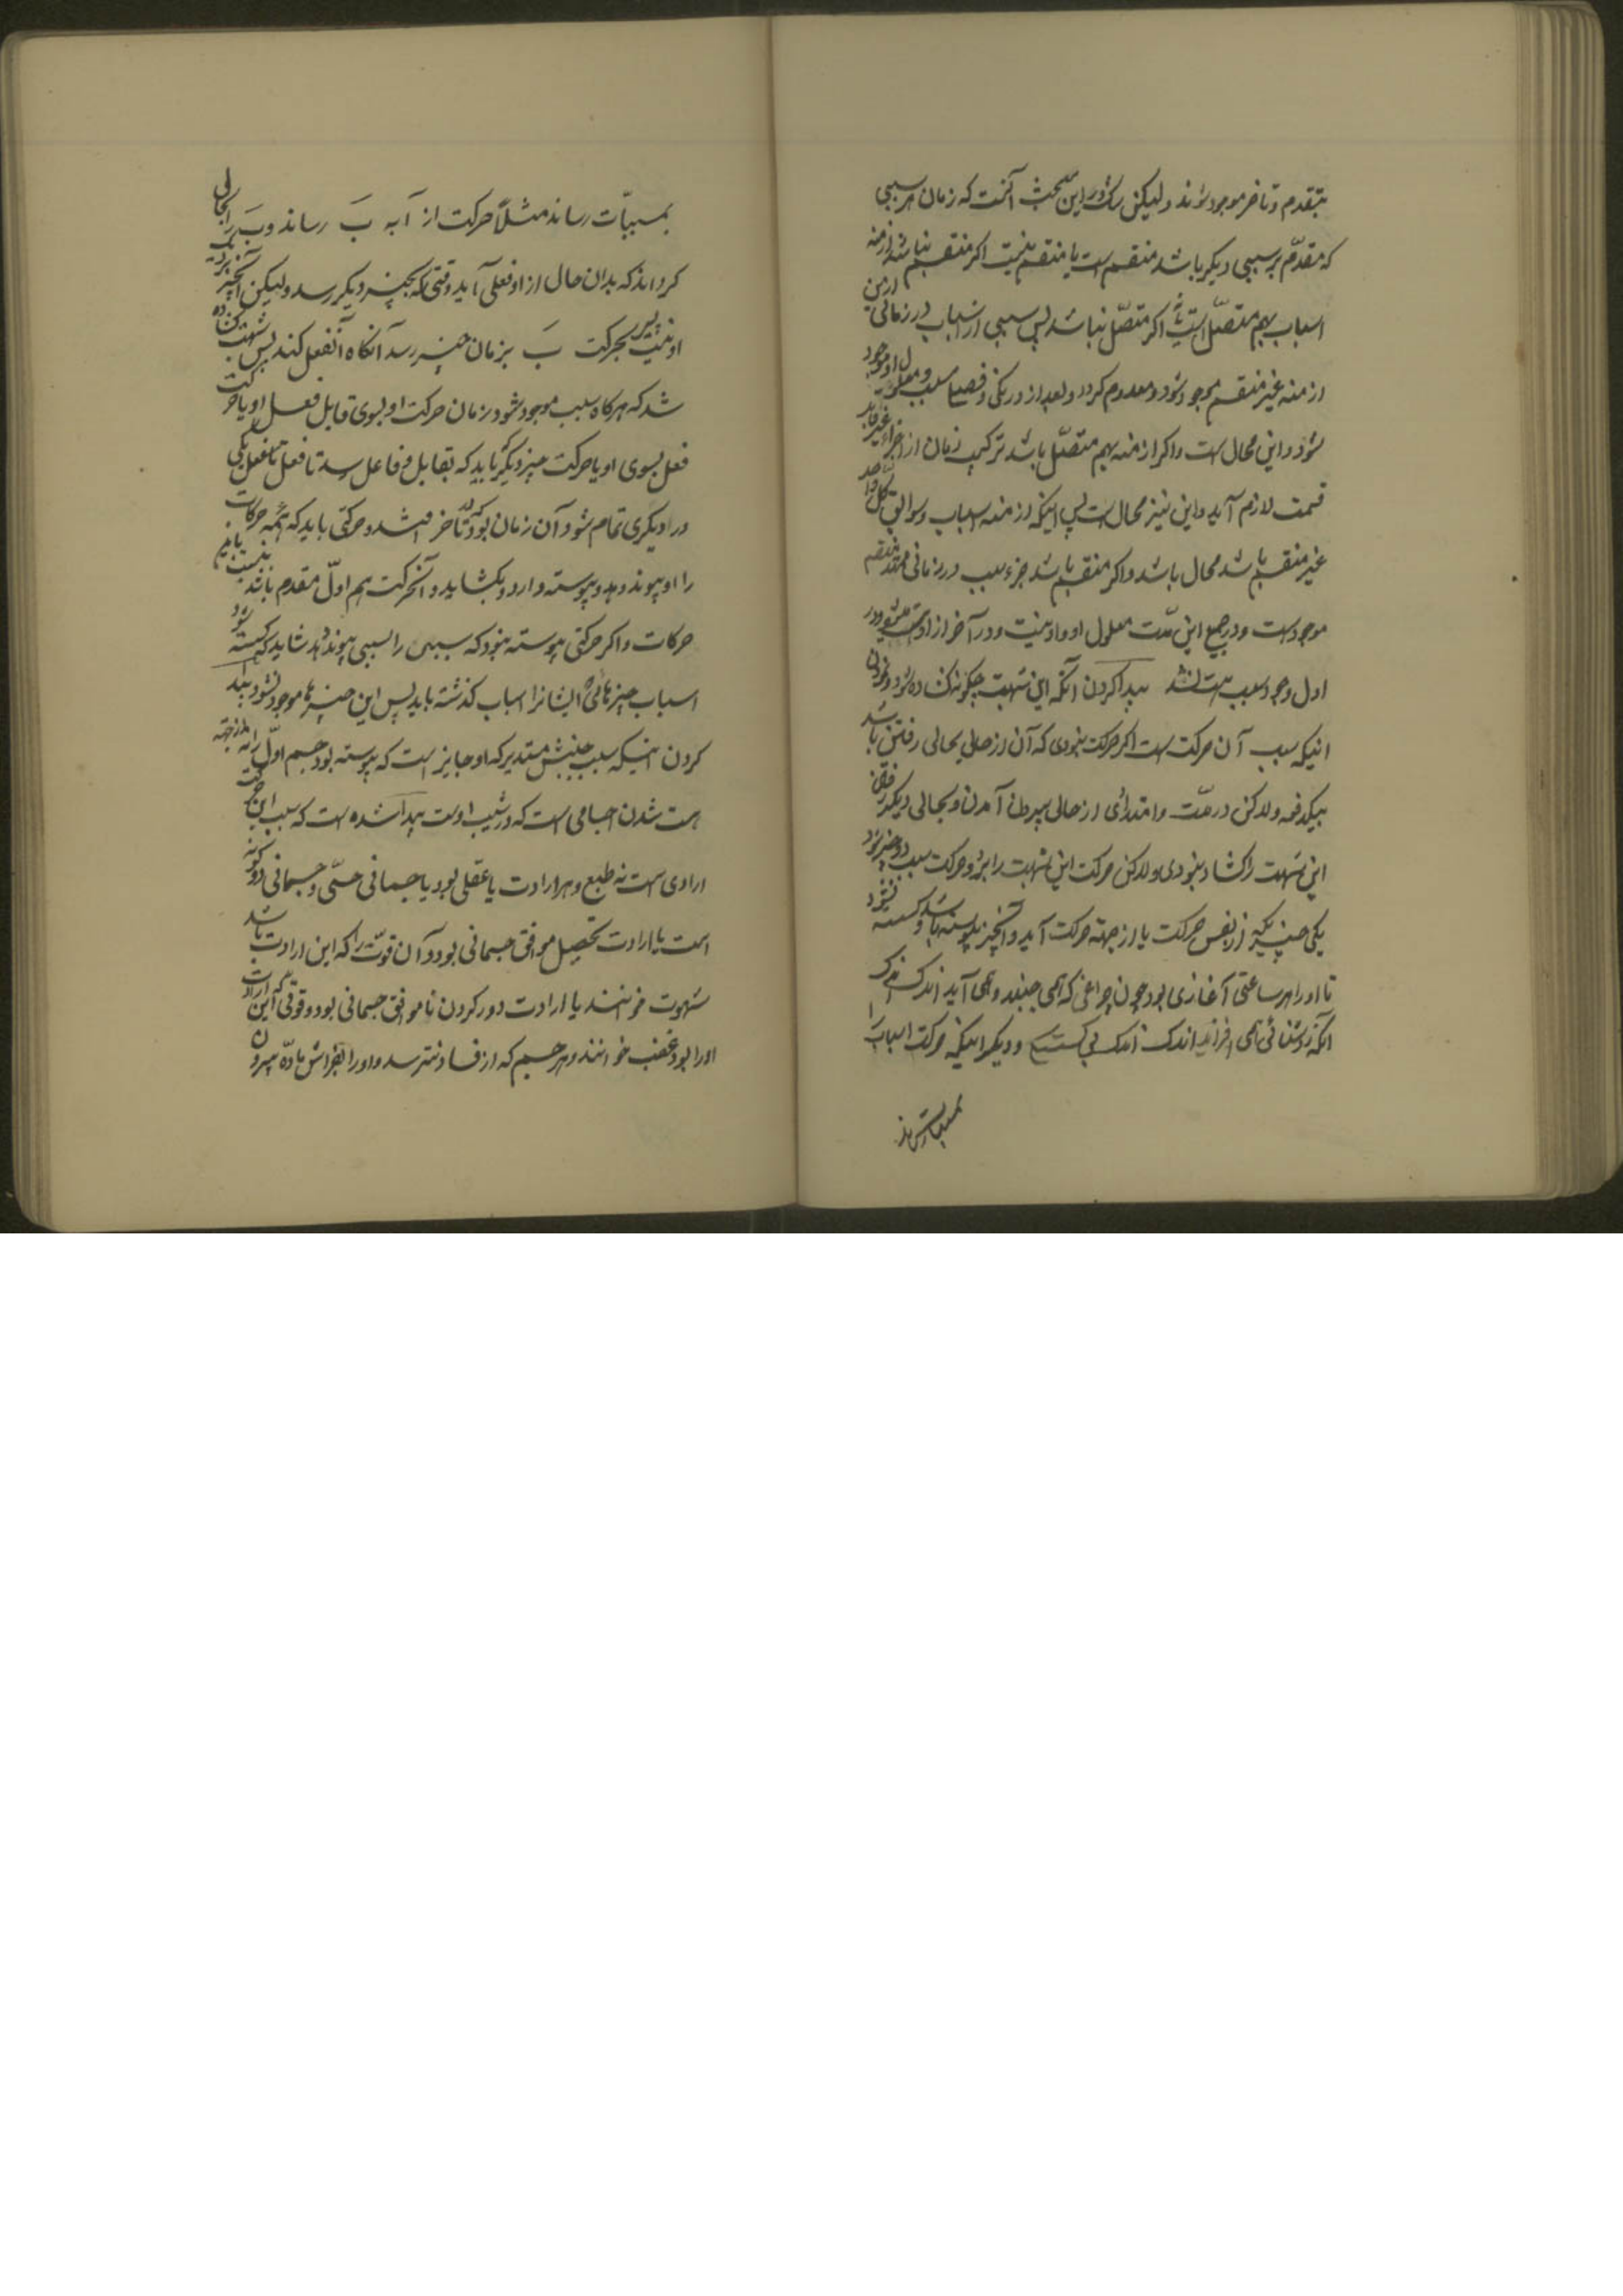 بتقدم و تاخر موجود شوند و لیکن شک در این مبحث آنست که زمان هر سببی
که مقدّم بر سببی دیگر باشد منقسم است یا منقسم نیست اگر منقسم نباشد ازمنه
اسباب بهم متصّل است یا نه اگر متصّل نباشد پس سببی از اسباب در زمانی از این
ازمنه غیر منقسم موجود شود و معدوم گردد و بعد از درنگی و فصلی سبب و معلول او موجود
شود و این محال است و اگر ازمنه بهم متصّل باشد ترکیب زمان از اجزاء غیر قابل
قسمت لازم آید و این نیز محال است پس اینکه ازمنه اسباب و سوابق کل واحد
غیر منقسم باشد محال باشد و اگر منقسم باشد جزء سبب در زمانی ممتد منقسم
موجود است و در جمیع این مدّت معلول او با او نیست و در آخر از او هست میشود و در
اول وجود سبب هست نشد پیدا کردن آنکه این شبهت چگونه گشاده شود و نمودن
اینکه سبب آن حرکت است اگر حرکت نبودی که آن از حالی بحالی رفتن باشد
بیکدفعه ولکن در مدّت و امتدادی از حالی بیرون آمدن و بحالی دیگر رفتن
این شبهت را گشاد نبودی ولکن حرکت این شبهت را برد و حرکت سبب دو چیز بود
یکی چیزیکه از نفس حرکت یا از جهته حرکت آید و آنچیز پیوسته باشد و گسسته نشود
تا او را هر ساعتی آغازی بود چون چراغی که همی جنبد و همی آید اندک اندک
آنکه روشنائی همی افزاید اندک اندک بی گسستن و دیگر اینکه حرکت اسباب را
بمسببات رساند
بمسببّات رساند مثلاً حرکت از آ به بَ رساند و بَ را بحالی
گرداند که بدان حال از او فعلی آید وقتی که بچیز دیگر رسد و لیکن آنچیز نزدیک
او نیست پس بحرکت بَ بزمان چیز رسد آنگاه آنفعل کند پس شبهت گشاده
شد که هرگاه سبب موجود شود زمان حرکت او بسوی قابل فعل او یا حرکت
فعل بسوی او یا حرکت چیز دیگر باید که بقابل و فاعل رسد تا فعل یکی
در دیگری تمام شود و آن زمان بود که تاخر افتد و حرکتی باید که همه حرکات
را او پیوند دهد و پیوسته دارد و بگشاید و آنحرکت هم اوّل مقدم باشد نسبت باین
حرکات و اگر حرکتی پیوسته نبود که سببی را بسببی پیوند دهد شاید که گسسته شود
اسباب چیزهائی که ایشانرا اسباب گذشته باید پس این چیزها موجود نشود پیدا
کردن اینکه سبب جنبش مستدیر که او جایز است که پیوسته بود جسم اوّل را نه از جهته
هست شدن اجسامی است که در شیب اوست پیدا شده است که سبب این حرکت
ارادی است نه طبع و هر ارادت یا عقلی بود یا جسمانی حسّی و جسمانی دو گونه
است یا ارادت تحصیل موافق جسمانی بود و آن قوّت را که این ارادت باشد
شهوت خوانند یا ارادت دور کردن ناموافق جسمانی بود و قوّتی که این ارادت
او را بود غضب خوانند و هر جسم که از فساد نترسد و او را بفزایش مادّه بیرون